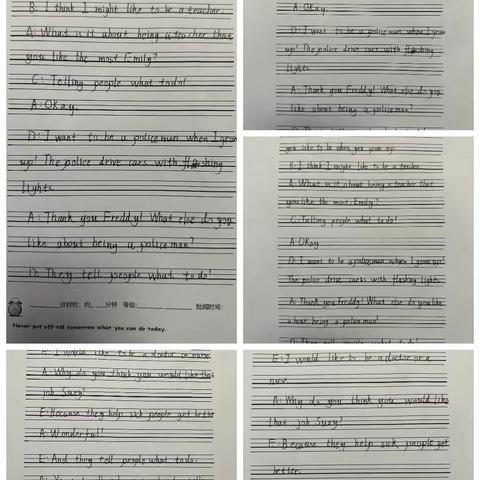 B: I think I might like to be a teacher.
A: What is it about being a teacher that
you like the most Emily?
C: Telling people what to do!
A: OKay.
D: I want to be a police man when I grow
up! The police drive cars with flashing
lights.
A: Thank you Freddy! What else do you
like about being a police man?
D: They tell people what to do!
计时栏：约 分钟 等级： 批阅时间：
Never put off till tomorrow what you can do today.
A: Okay.
D: I want to be a policeman when I grow
up! The police drive cars with flashing
lights.
A: Thank you Freddy! What else do you
like about being a police man?
you like to be when you grow up?
B: I think I might like to be a teacher.
A: What is it about being a teacher that
you like the most, Emily?
C: Telling people what to do!
A: OKay
D: I want to be a policeman when I grow up!
The police drive cars with flashing lights.
A: Thank you Freddy! What else do you like
about being a police man?
D: They tell people what to do!
E: I would like to be a doctor or nurse.
A: Why do you think you would like that
job, Suzy?
E: Because they help sick people get better
A: Wonderful!
E: And they tell people what to do.
E: I would like to be a doctor or a
nurse.
A: Why do you think you would like
that job, Suzy?
E: Because they help sick people get
better.